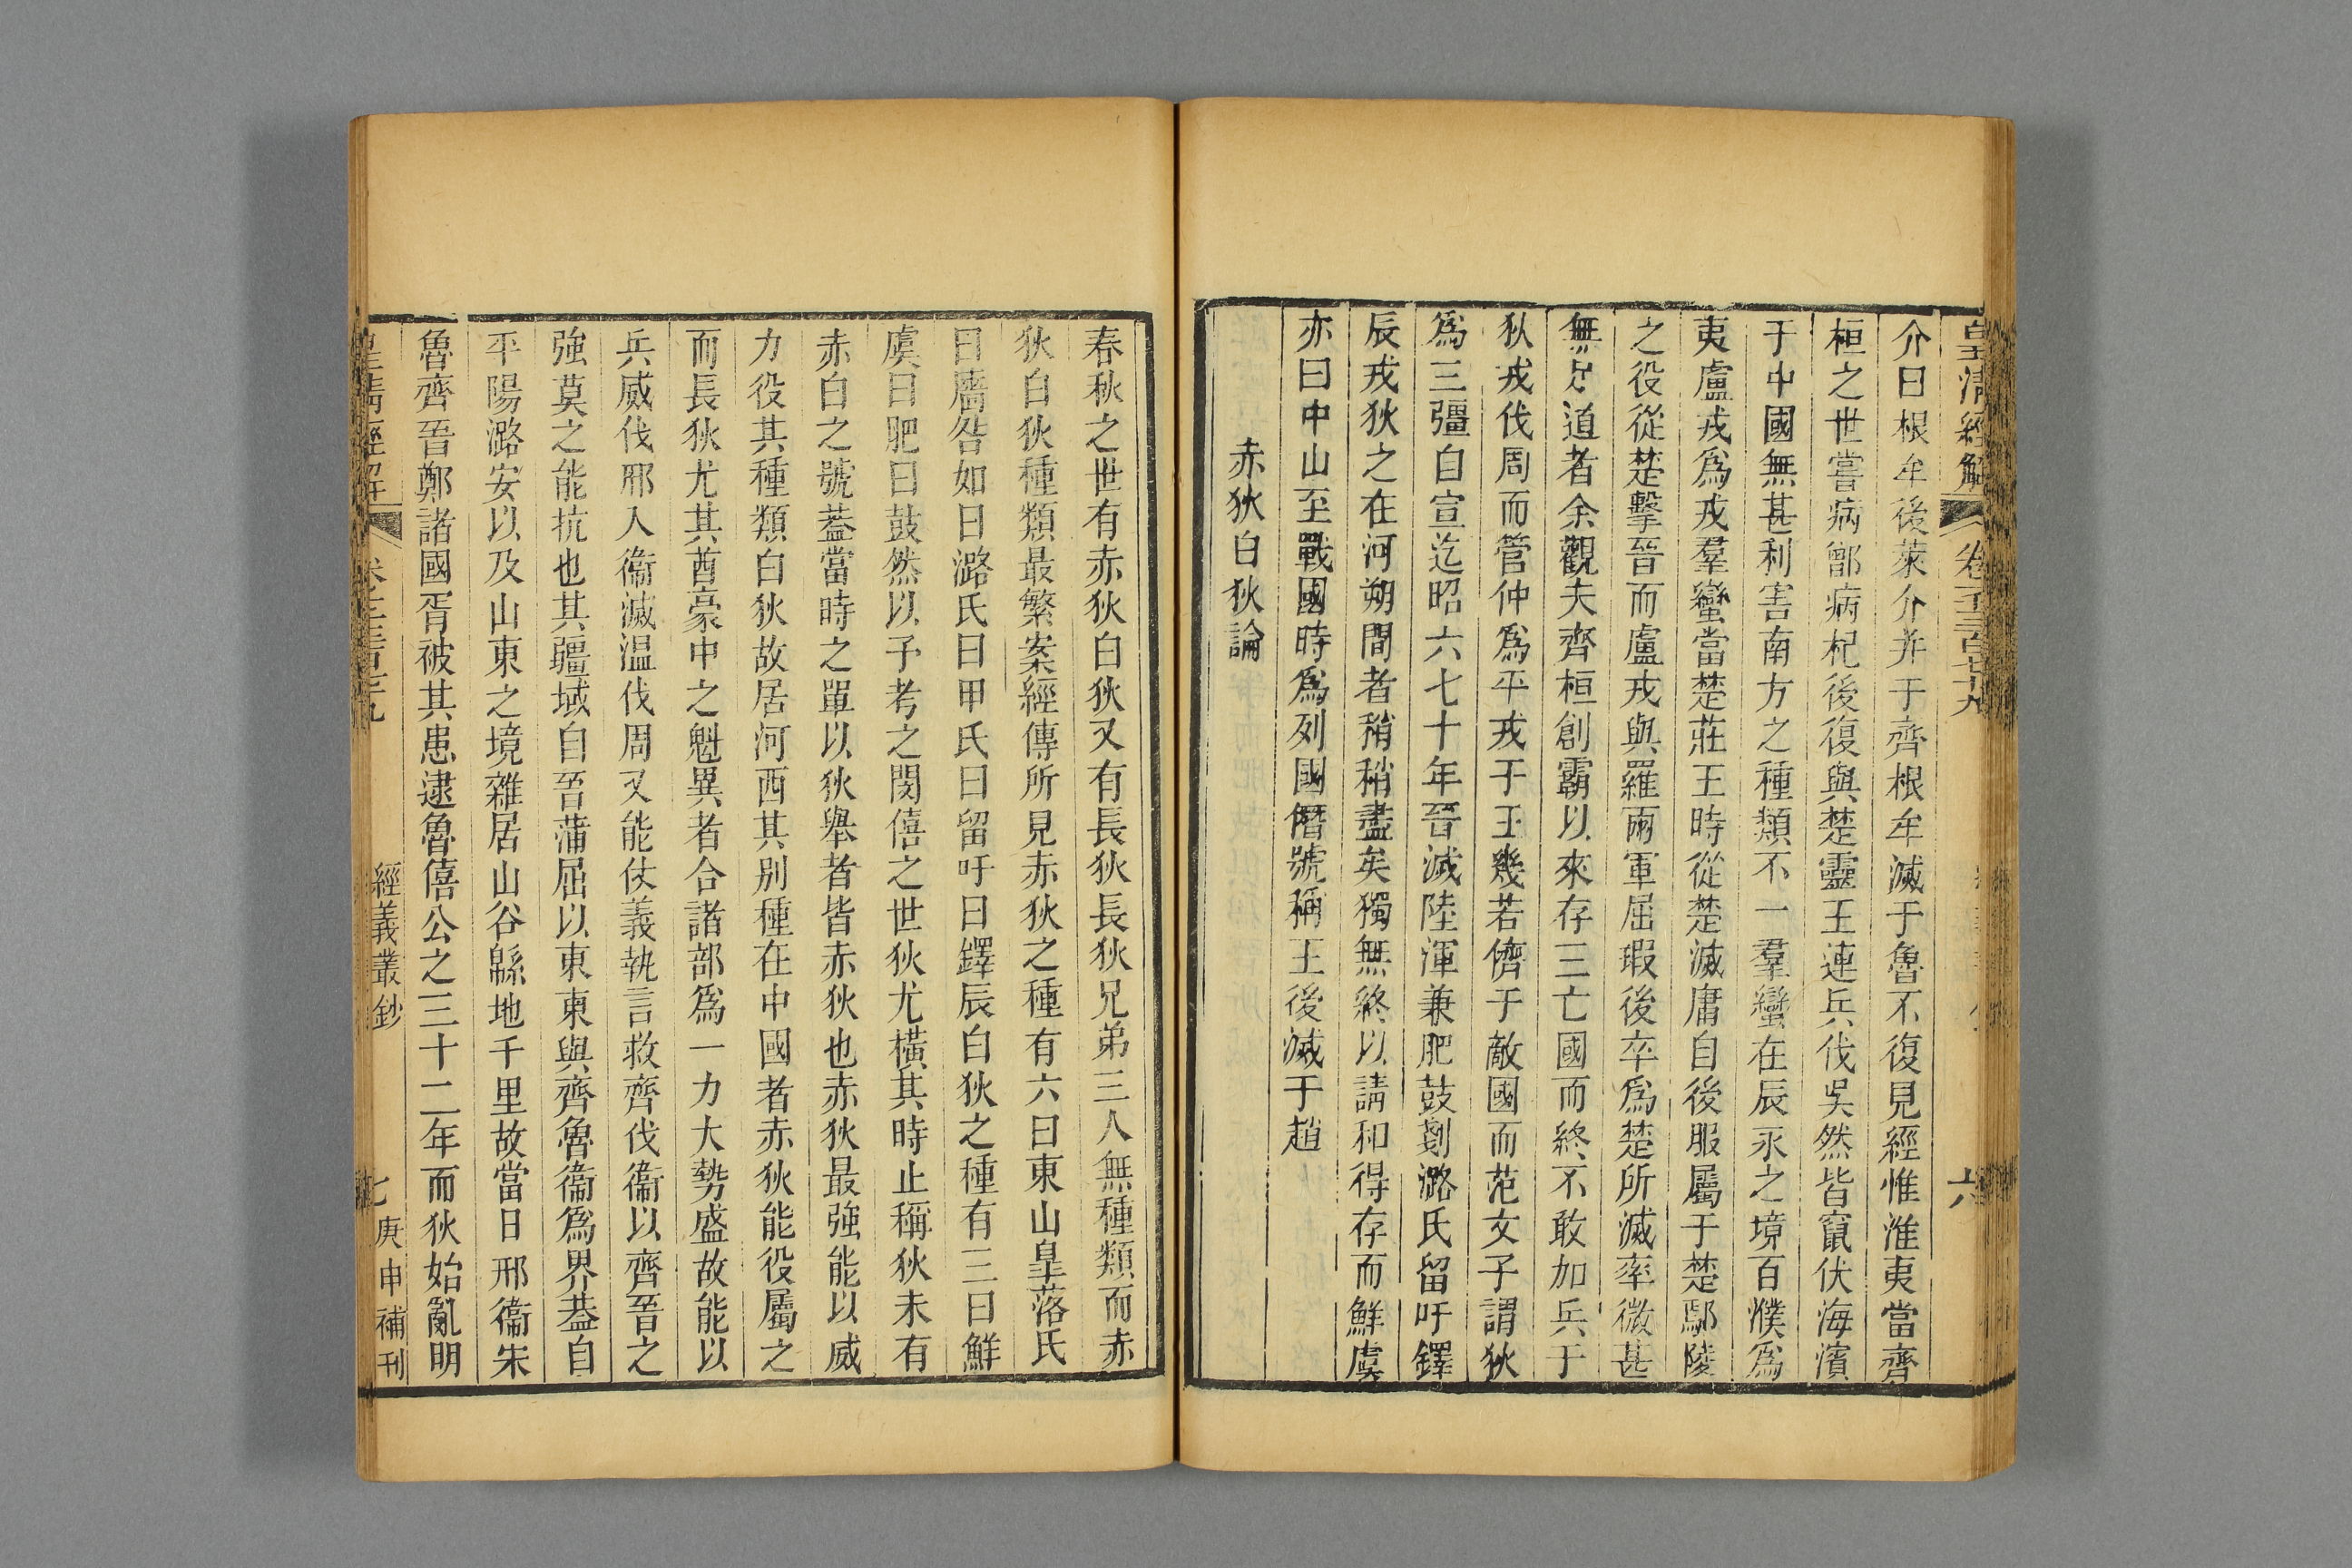 皇清經解
卷一千三百七十九
六
介曰根牟後萊介并于齊根牟滅于魯不復見經惟淮夷當齊
桓之世嘗病鄫病杞後復與楚靈王連兵伐吳然皆竄伏海濱
于中國無甚利害南方之種類不一羣蠻在辰永之境百濮爲
夷盧戎爲戎羣蠻當楚莊王時從楚滅庸自後服屬于楚鄢陵
之役從楚擊晉而盧戎與羅兩軍屈瑕後卒爲楚所滅率微甚
無足道者余觀夫齊桓創霸以來存三亡國而終不敢加兵于
狄戎伐周而管仲爲平戎于王幾若儕于敵國而范文子謂狄
爲三彊自宣迄昭六七十年晉滅陸渾兼肥鼓剗潞氏留吁鐸
辰戎狄之在河朔間者稍稍盡矣獨無終以請和得存而鮮虞
亦曰中山至戰國時爲列國僭號稱王後滅于趙
赤狄白狄論
春秋之世有赤狄白狄又有長狄長狄兄弟三人無種類而赤
狄白狄種類最繁案經傳所見赤狄之種有六曰東山皐落氏
曰廧咎如曰潞氏曰甲氏曰留吁曰鐸辰白狄之種有三曰鮮
虞曰肥曰鼓然以予考之閔僖之世狄尤橫其時止稱狄未有
赤白之號葢當時之單以狄舉者皆赤狄也赤狄最強能以威
力役其種類白狄故居河西其别種在中國者赤狄能役屬之
而長狄尤其酋豪中之魁異者合諸部爲一力大勢盛故能以
兵威伐邢入衞滅温伐周又能仗義執言救齊伐衞以齊晉之
強莫之能抗也其疆域自晉蒲屈以東東與齊魯衞爲界葢自
平陽潞安以及山東之境雜居山谷緜地千里故當日邢衞宋
魯齊晉鄭諸國胥被其患逮魯僖公之三十二年而狄始亂明
皇清經解
經義叢鈔
七
庚申補刊